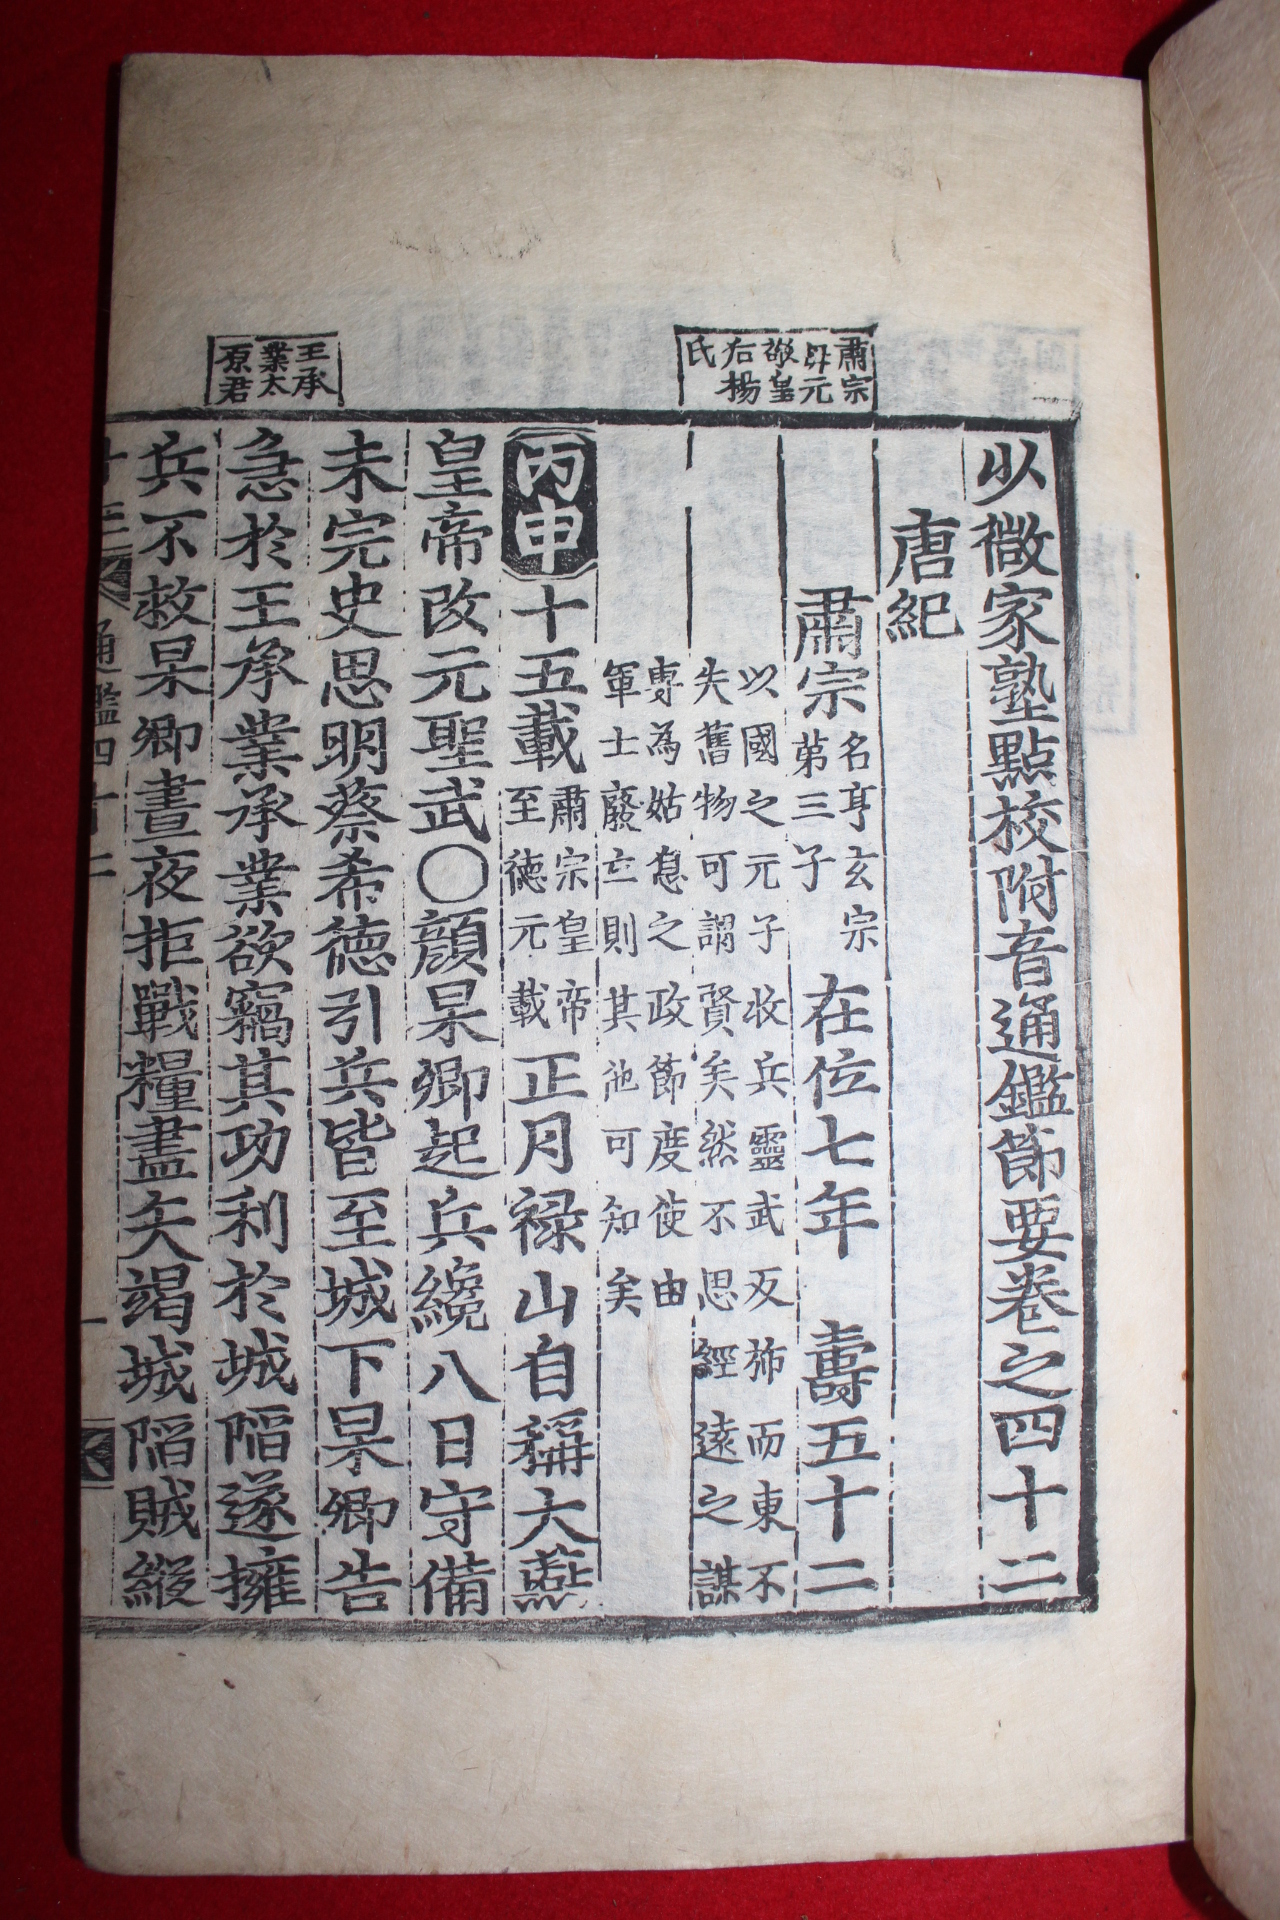 肅宗
母元
獻皇
右楊
氏
王承
業太
原君
少微家塾點校附音通鑑節要卷之四十二
唐紀
肅宗名亨玄宗第三子在位七年 壽五十二
以國之元子收兵靈武反斾而東不
失舊物可謂賢矣然不思經遠之謀
專為姑息之政節度使由
軍士廢立則其他可知矣
丙申十五載肅宗皇帝至德元載正月祿山自稱大燕
皇帝改元聖武○顔杲卿起兵纔八日守備
未完史思明蔡希德引兵皆至城下杲卿告
急於王承業承業欲竊其功利於城陷遂擁
兵不救杲卿晝夜拒戰糧盡矢竭城陷賊縱
通鑑四十二
一